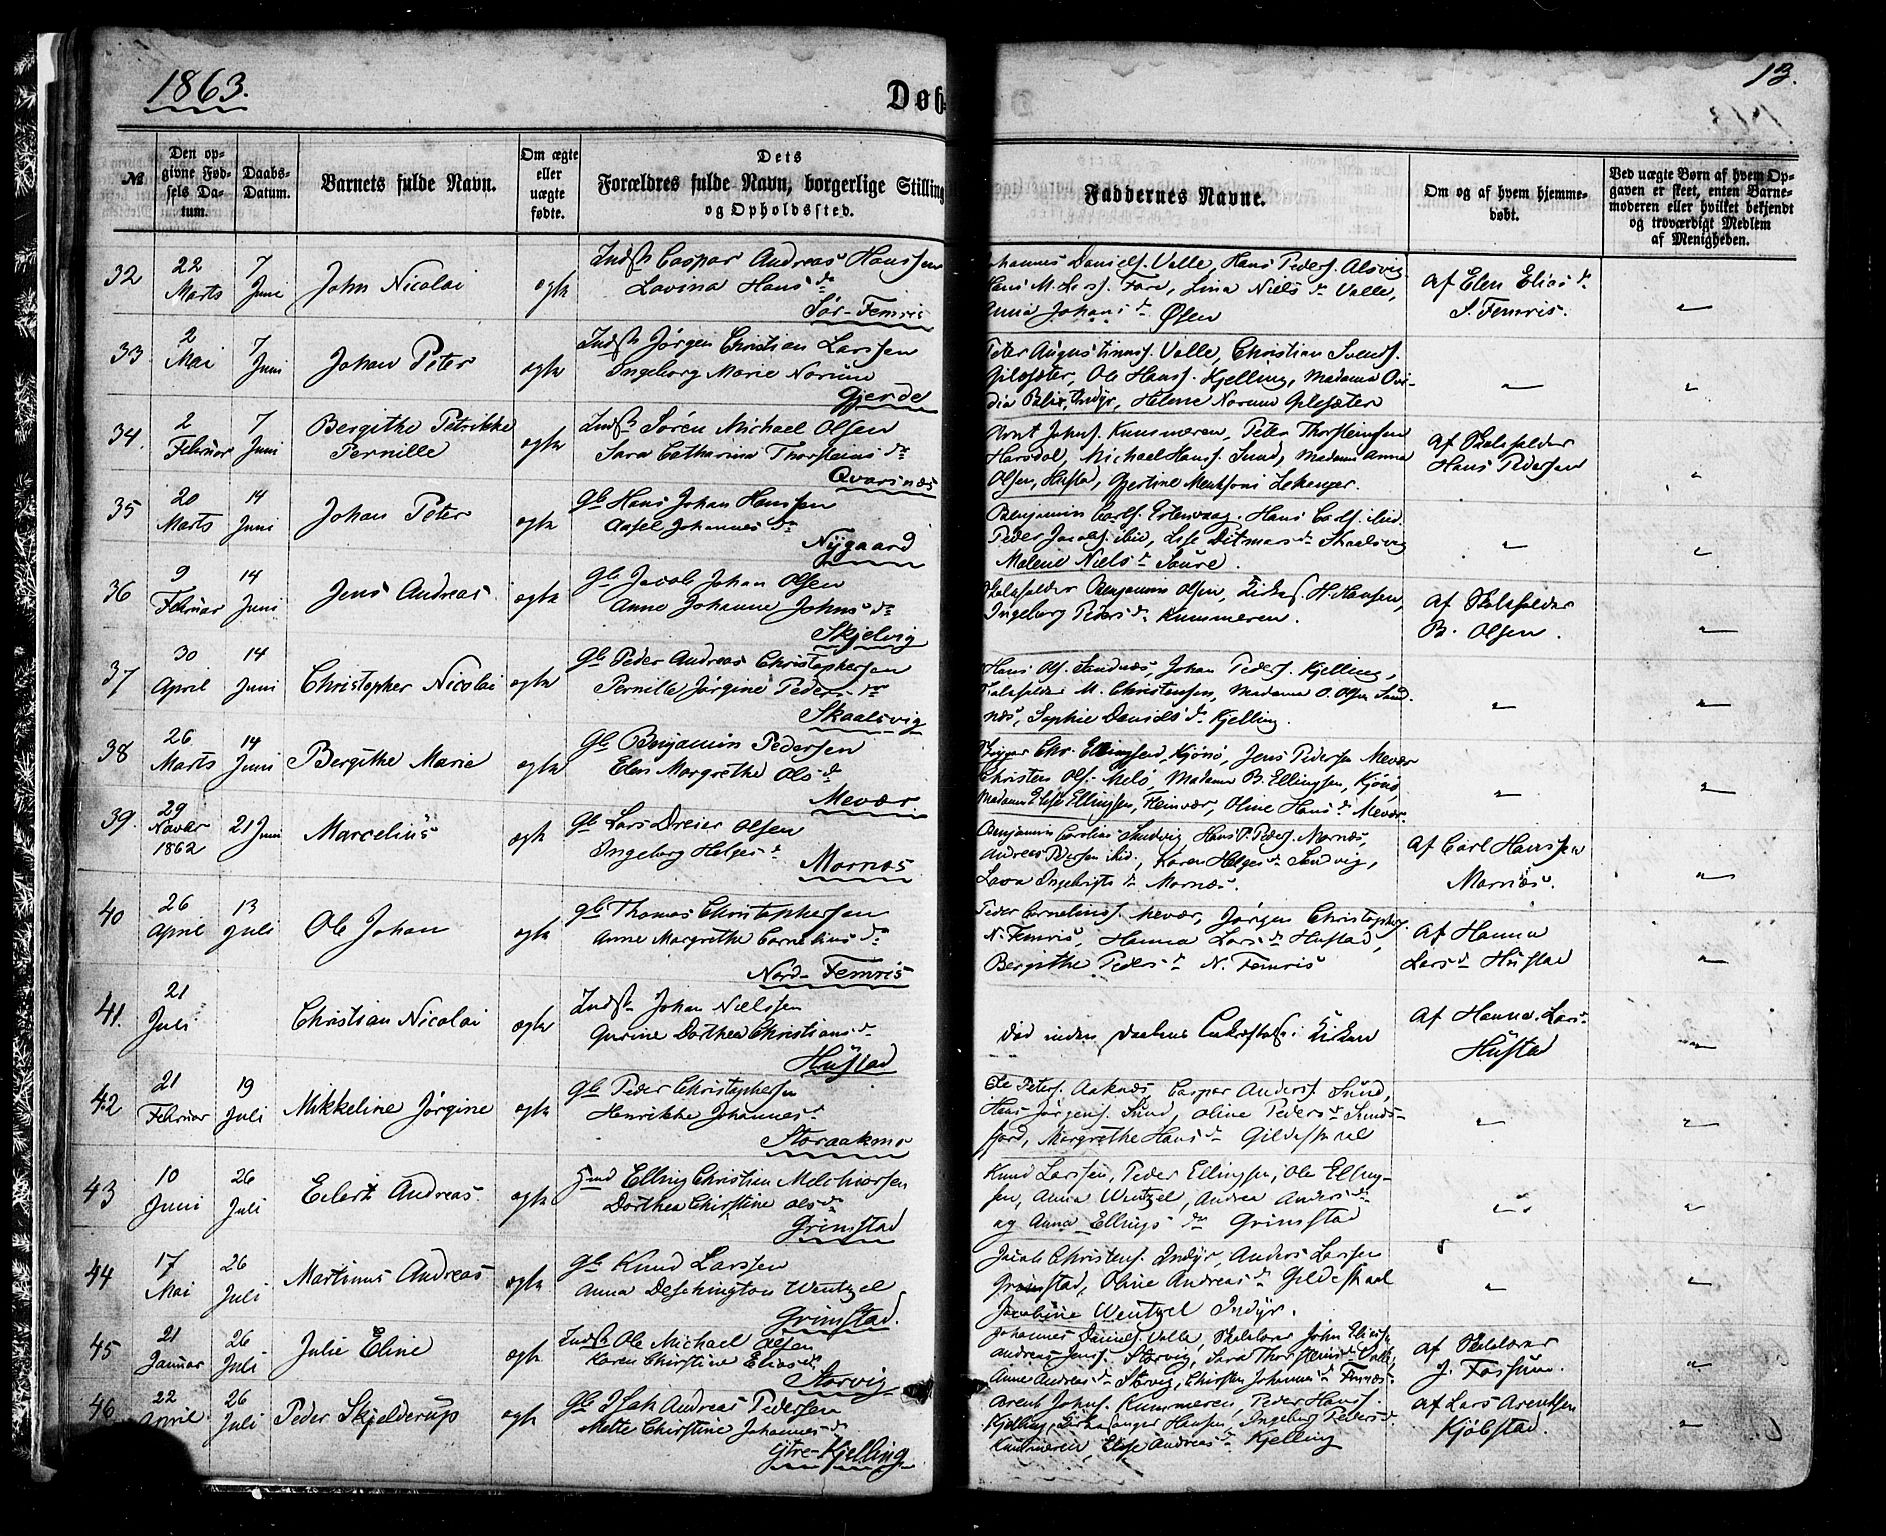 1863.
Døb
13.
№
Den op-
givne Fød-
sels Da-
tum.
Daabs-
Datum.
Barnets fulde Navn.
Om ægte
eller
uægte
fødte.
Dets
Forældres fulde Navn, borgerlige Stilling
og Opholdssted.
Faddernes Navne.
Om og af hvem hjemme-
døbt.
Ved uægte Børn af hvem Op-
gaven er skeet, enten Barne-
moderen eller hvilket bekjendt
og troværdigt Medlem
af Menigheden.
32
22 Marts
7 Juni
John Nicolai
ægte
Indst Caspar Andreas Hanssen
Lovina Hans dr
Sör-Femris
Johannes Daniels. Valle, Hans Peders. Alsvig
Hans M. Lars. Fore, Lina Niels dr Valle,
Anna Johans dr Øsen
Af Elen Elias dr
S. Femris.
33
2 Mai
7 Juni
Johan Peter
ægte
Indst Jørgen Christian Larssen
Ingeborg Marie Norum
Gjerde
Peter Augustinuss. Valle, Christian Svends.
Gilesæter, Ole Hans. Kjelling, Madama Ovi-
dia Blix, Indyr, Helene Norum Gilesæter
34.
2 Februar
7 Juni
Bergithe Petrikke
Pernille
ægte
Indst Sören Michael Olsen
Sara Catharina Thorsteins dr
Qvarsnæs
Arnt Johns. Kunnmæren, Peter Thorsteinsen
Harsdal, Michael Hans. Sund, Madam Anna
Olsen, Hustad, Gjertine
Af Skolefolder
Hans Pedersen
35
20 Marts
14 Juni
Johan Peter
ægte
Gb Hans Johan Hanssen
Axsel Johannes dr
Nygaard
Benjamin Carls. Ertenvaag. Hans Carls. ibid.
Peder Jacobs. ibid, Lise Ditmars dr Skaalsvig
Malene Niels dr Saure.
36
9 Februar
14 Juni
Jens Andreas.
ægte
Gb Jacob Johan Olsen
Anne Johanne Johns dr
Skjelvig
Skolefolder Benjamin Olsen, Kirkes. H. Hansen,
Ingeborg Peders dr Kunnmæren.
Af Skolefolder
B. Olsen.
37
30 April
14 Juni
Christopher Nicolai
ægte
Gb Peder Andreas Christophersen
Pernille Jørgine Peders dr
Skaalsvig
Hans Ols. Sandnæs, Johan Peders. Kjelling,
Skolefolder M. Christensen, Madama O. Olsen Sand-
næs, Sophie Davids dr Kjelling.
38
26 Marts
14 Juni
Bergithe Marie
ægte
Gb Benjamin Pedersen
Elen Margrethe Ols dr
Mevær.
Chr. Ellingsen, Kjönö, Jens Pedersen Mevær
Christen Ols. Melö, Madama B. Ellingsen, Kjönö,
Madam Else Ellingsen, Fleinvær, Oline Hans dr Mevær.
39.
29 Novbr
1862
21 Juni
Marcelius
ægte
Gb Lars Dreier Olsen
Ingeborg Helges dr
Marnæs
Benjamin Cornelius Sandvig, Hans P. Peders. Marnæs,
Andreas Pedersen ibid., Karen Helges dr Sandvig,
Lava Ingebrigts dr Marnæs.
Af Carl Hanssen
Marnæs.
40
26 April
13 Juli
Ole Johan
ægte
Gb Thomas Christophersen
Anne Margrethe Cornelius dr
Nord-Femris
Peder Cornelius. Mevær, Jørgen Christophers.
N. Femris, Hanna Lars dr Hustad,
Bergithe Peders dr N. Femris
Af Hanna
Lars dr Hustad
41.
21 Juli
Christian Nicolai
ægte
Indst Johan Nielssen
Gurine Dorthea Christians dr
Hustad
Död inden Daabens i Kirken
Af Hanna Lars dr
Hustad
42
21 Februar
19 Juli
Mikkeline Jørgine
ægte
Gb Peder Christophersen
Henrikke Johannes dr
Storaakmo
Ole Peters. Aaknæs, Caspar Anders. Sund,
Hans Jørgens. Sund, Oline Peders dr Sunds-
fjord, Margrethe Hans dr Gildeskaal
43
10 Juni
26 Juli
Eilert Andreas.
ægte
Elling Christian Melchiorsen
Dorthea Christine Ols dr
Grimstad
Knud Larssen, Peder Ellingsen, Ole Elling-
sen, Anna Wentzel, Andrea Anders dr
og Anna Ellings dr Grimstad
44
17 Mai
26 Juli
Martinus Andreas
ægte
Gb Knud Larssen
Anna Deschington Wentzel
Grimstad.
Jacob Christens. Indyr, Anders Larssen
Grimstad, Oline Andreas dr Gildeskaal
Jacobine Wentzel Indyr.
45
21 Januar
26 Juli
Julie Eline
ægte
Indst Ole Michael Olsen
Karen Christine Elias dr
Storvig
Johannes Daniels. Valle, Skolelærer John Eliass.
Andreas Jens. Storvig, Sara Thorsteins dr Valle,
Anne Andreas dr Storvig, Chirsten Johannes dr Femris.
Af Skolelærer
J. Fossum.
46
22 April
26 Juli
Peder Skjelderup
ægte
Gb Isak Andreas Pedersen
Mette Christine Johannes dr
Ytre-Kjelling
Arent Johns. Kunnmæren, Peder Hans.
Kjelling, Kirkesanger Hansen, Ingeborg Peders dr
Kunnmæren, Else Andreas dr Kjelling
Af Lars Arentsen
Kjöbstad.